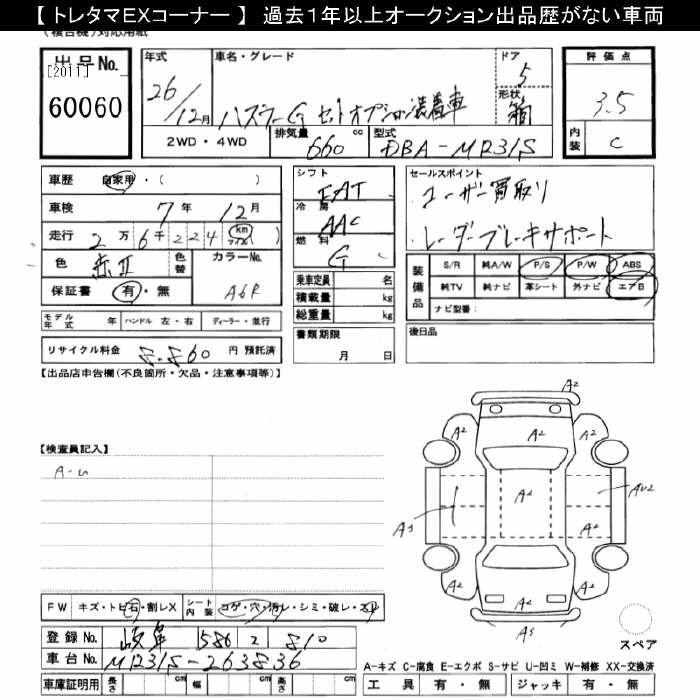 【 トレタマEXコーナー 】 過去1年以上オークション出品歴がない車両
(複合機)対応用紙
出品No. [2011] 60060
年式 26/12月
車名・グレード ハスラーG セットオプション装着車
ドア 5
形状 箱
評価点 3.5
内装 C
2WD・4WD
排気量 660 cc
型式 DBA-MR31S
車歴 自家用・( )
車検 7年 12月
走行 2万6千224 (km マイル)
色 赤II 色替 カラーNo. A6R
保証書 有・無
モデル年式 年 ハンドル 左・右 ディーラー・並行
リサイクル料金 8,860 円 預託済
シフト FAT
冷房 AAC
燃料 G
乗車定員 名
積載量 kg
総重量 kg
書類期限 月 日
セールスポイント
ユーザー買取り
レーダーブレーキサポート
装備品 S/R 純A/W P/S P/W ABS
純TV 純ナビ 革シート 外ナビ エアB
ナビ型番:
後日品
【出品店申告欄(不良箇所・欠品・注意事項等)】
【検査員記入】
A-U
A2
A2 A2 A2
A2 AU2
A3 A2
A2 A2 A2
A3
スペア
FW キズ・トビ石・割レX シート内装 コゲ・穴・汚レ・シミ・破レ・スレ
登録No. 岐阜 586 2 810
車台No. MR31S-263836
車庫証明用 長さ cm 幅 cm 高さ cm
A-キズ C-腐食 E-エクボ S-サビ U-凹ミ W-補修 XX-交換済
工具 有・無 ジャッキ 有・無